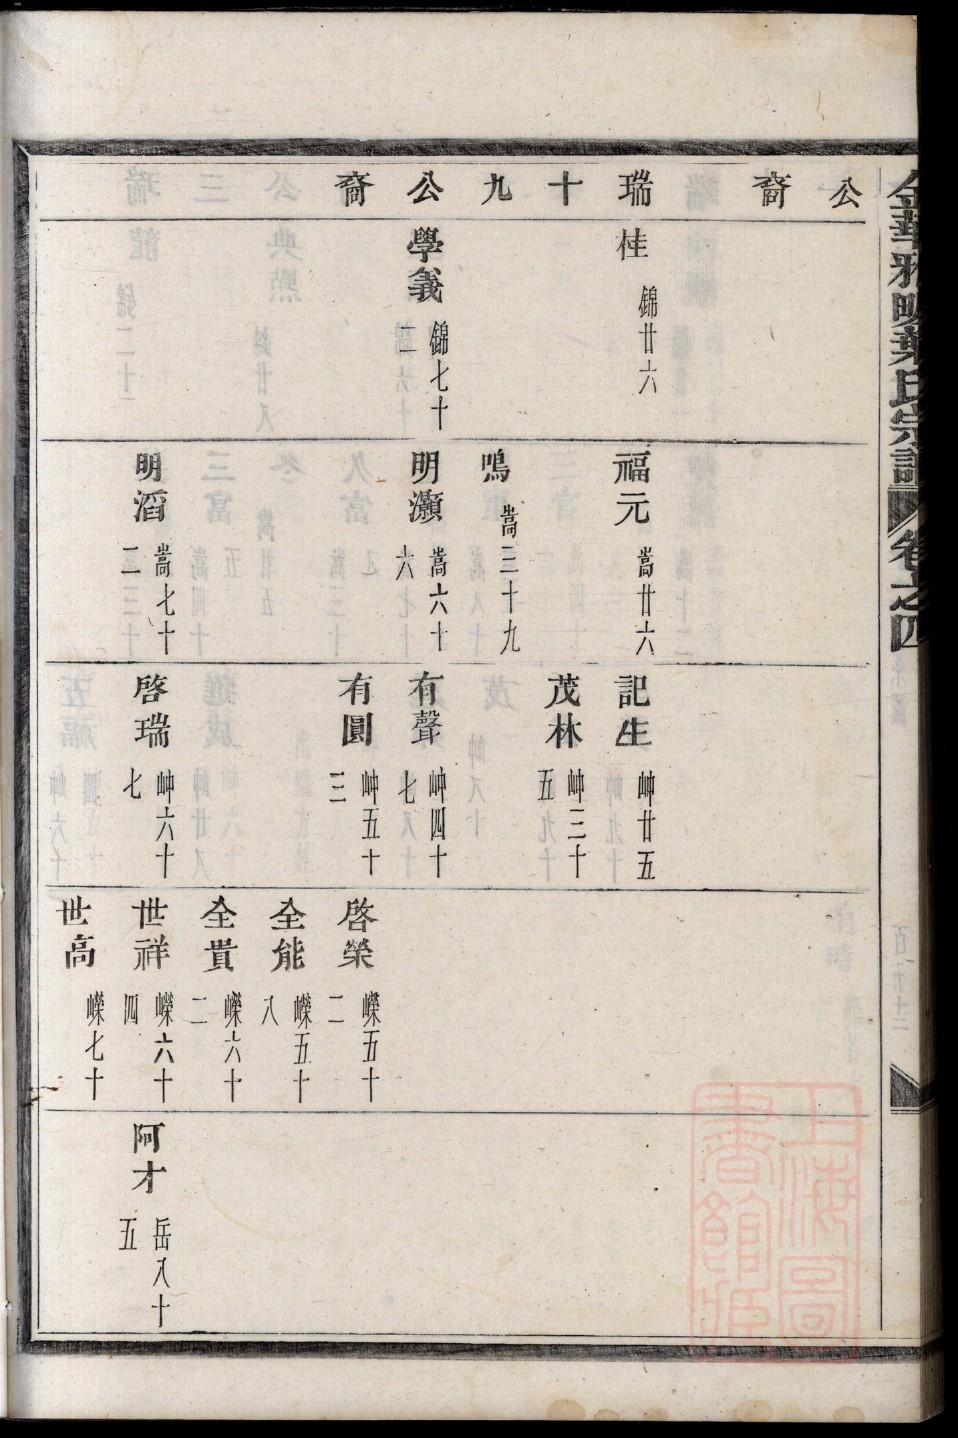 金華雅明葉氏宗譜 卷之四
公 裔 瑞 十 九 公 裔
桂 錦廿六
學義 錦七十二
福元 嵩廿六
鳴 嵩三十九
明灝 嵩六十六
明滔 嵩七十二
記生 岫廿五
茂林 岫三十五
有聲 岫四十七
有圓 岫五十三
啓瑞 岫六十七
啓榮 嶸五十二
全能 嶸五十八
全貴 嶸六十二
世祥 嶸六十四
世高 嶸七十
阿才 岳八十五
上海圖書館藏